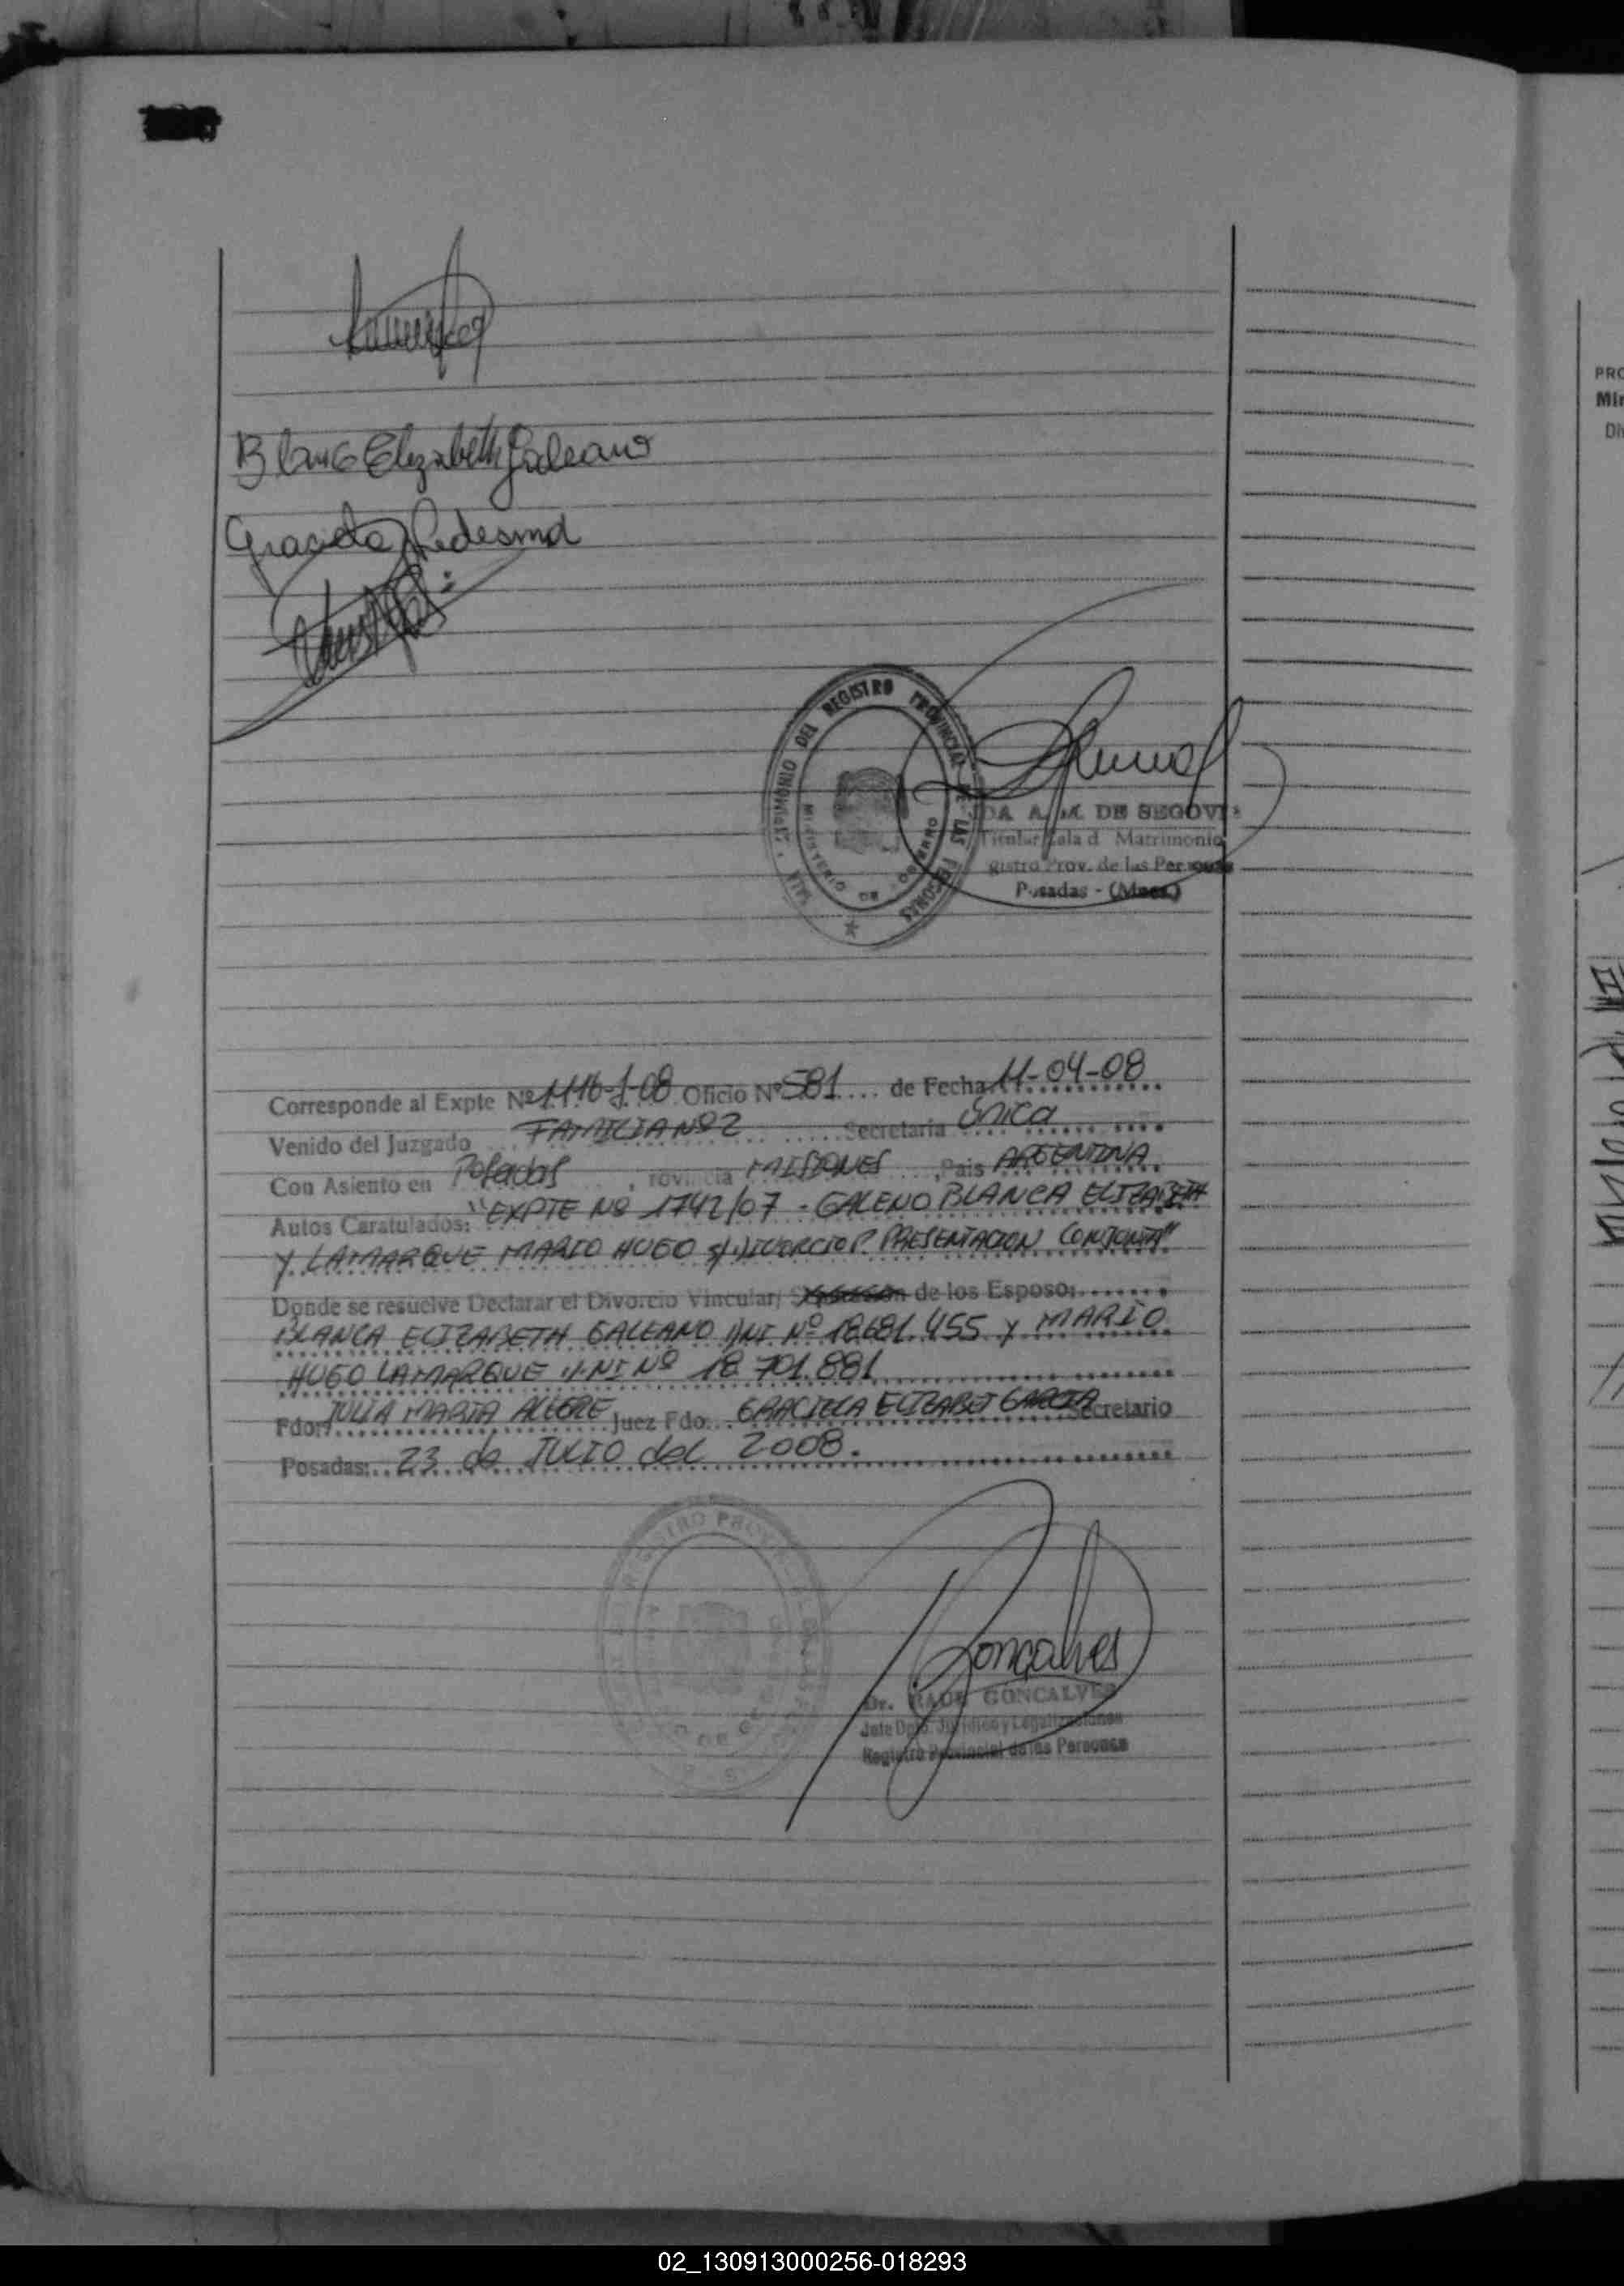 Blanca Elizabeth Galeano
Graciela Ledesma
DEL REGISTRO PROVINCIAL DE LAS PERSONAS
MINISTERIO DE GOBIERNO
DA A. M. DE SEGOVI
Titular Sala d Matrimonio
gistro Prov. de las Personas
Posadas - (Mnes.)
Corresponde al Expte Nº 1116-J-08 Oficio Nº 581 de Fecha 11-04-08
Venido del Juzgado FAMILIA Nº 2 Secretaria ÚNICA
Con Asiento en Posadas, rovincia MISIONES, Pais ARGENTINA
Autos Caratulados: "EXPTE Nº 1742/07 - GALENO BLANCA ELIZABETH
Y LAMARQUE MARIO HUGO S/ DIVORCIO P. PRESENTACION CONJUNTA"
Donde se resuelve Declarar el Divorcio Vincular/ de los Esposo:
BLANCA ELIZABETH GALEANO DNI Nº 18.681.455 y MARIO
HUGO LAMARQUE D.NI Nº 18.701.881
Fdo: JULIA MARIA ALEGRE Juez Fdo: GRACIELA ELIZABET GARCIA Secretario
Posadas: 23 de JULIO del 2008.
REGISTRO PROV
Gonçalves
Dr. RAUL GONCALVES
Jefe Dpto. Jurídico y Legalizaciones
Registro Provincial de las Personas
PRO
Min
Div
02_130913000256-018293